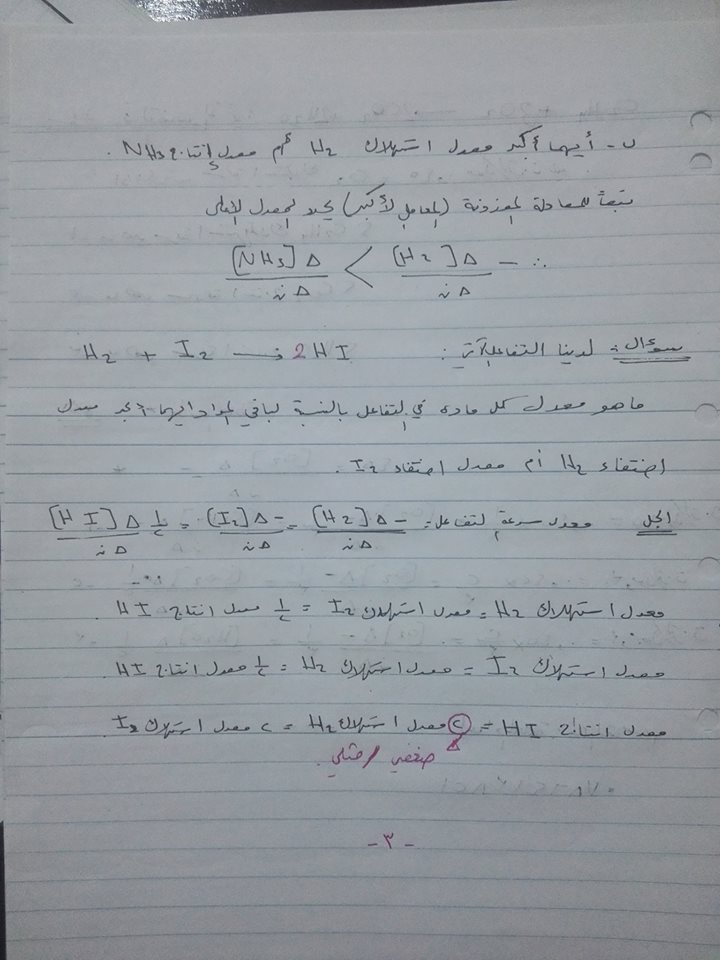 ب - أيهما أكبر معدل استهلاك H2 أم معدل إنتاج NH3.
تبعاً للمعادلة الموزونة (المعامل الأكبر) يحدد المعدل الأعلى
∴ - Δ[H2]/Δن > Δ[NH3]/Δن
سؤال: لدينا التفاعل الآتي: H2 + I2 → 2HI
ما هو معدل كل مادة في التفاعل بالنسبة لباقي المواد أيهما أكبر معدل
اختفاء H2 أم معدل اختفاء I2.
الحل معدل سرعة التفاعل = -Δ[H2]/Δن = -Δ[I2]/Δن = ½ Δ[HI]/Δن
معدل استهلاك H2 = معدل استهلاك I2 = ½ معدل انتاج HI
معدل استهلاك I2 = معدل استهلاك H2 = ½ معدل انتاج HI
معدل انتاج HI = ٢ معدل استهلاك H2 = ٢ معدل استهلاك I2
ضعفي / مثلي.
- ٣ -